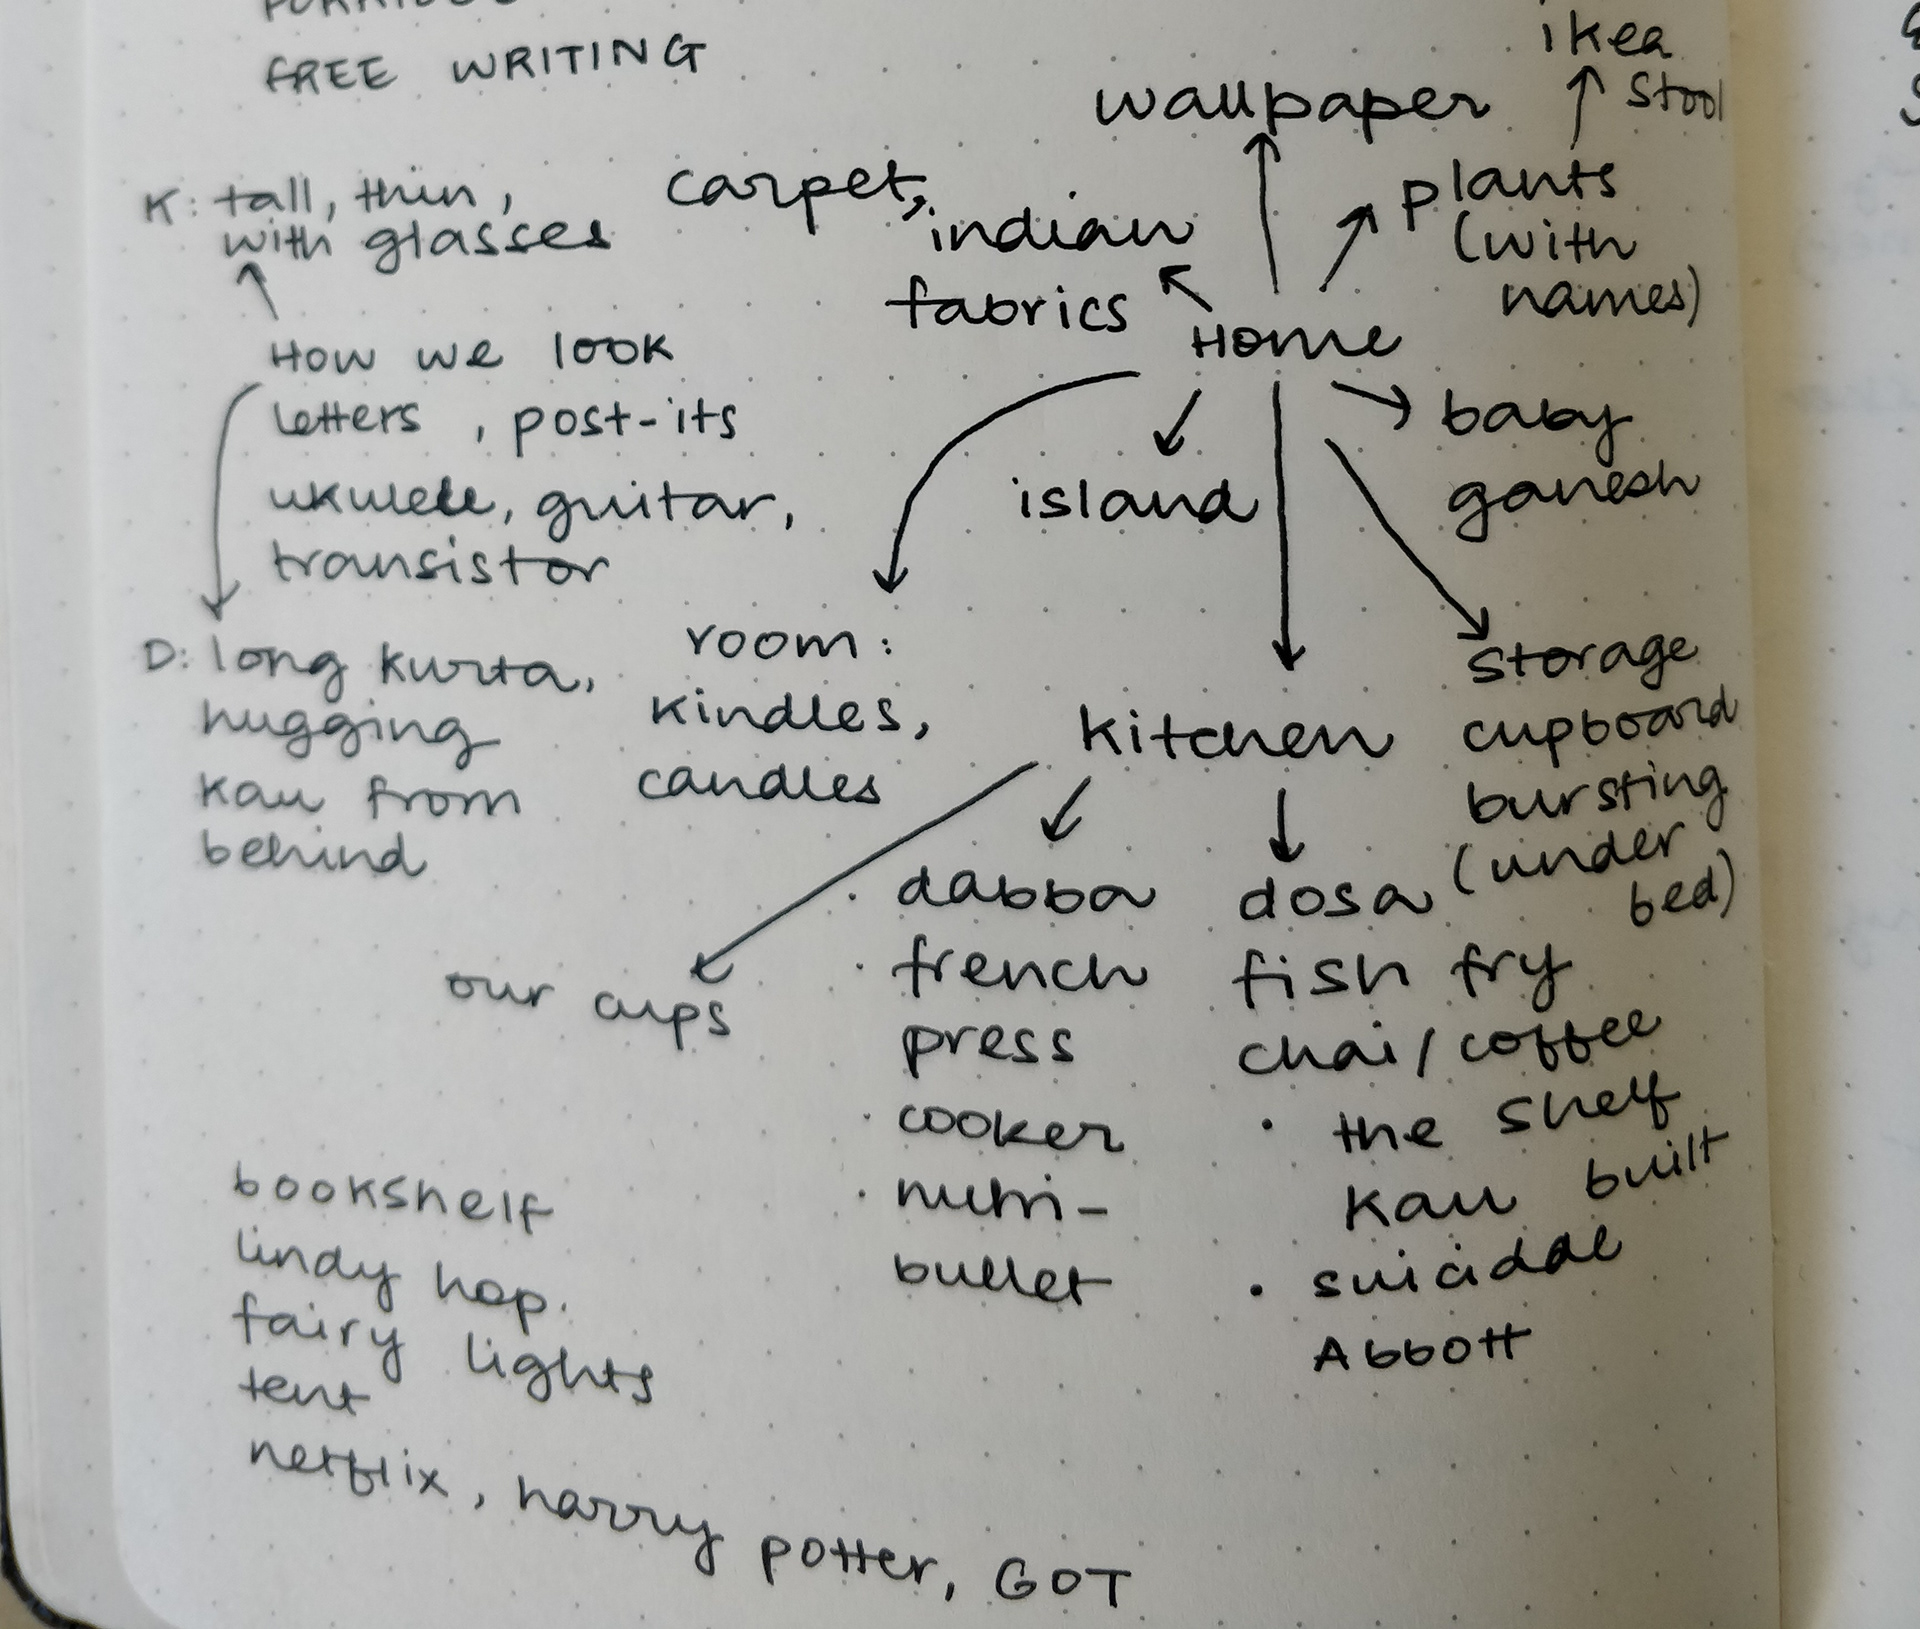 FREE WRITING
ikea
stool
wallpaper
plants
(with
names)
carpet,
indian
fabrics
K: tall, thin,
with glasses
Home
How we look
letters, post-its
ukulele, guitar,
transistor
baby
ganesh
island
D: long kurta,
hugging
Kau from
behind
room:
kindles,
candles
kitchen
storage
cupboard
bursting
(under
bed)
our cups
· dabba
· french
press
· cooker
· nutri-
bullet
dosa
fish fry
chai/coffee
· the shelf
Kau built
· suicidal
Abbott
bookshelf
lindy hop.
fairy lights
tent
netflix, harry potter, GOT